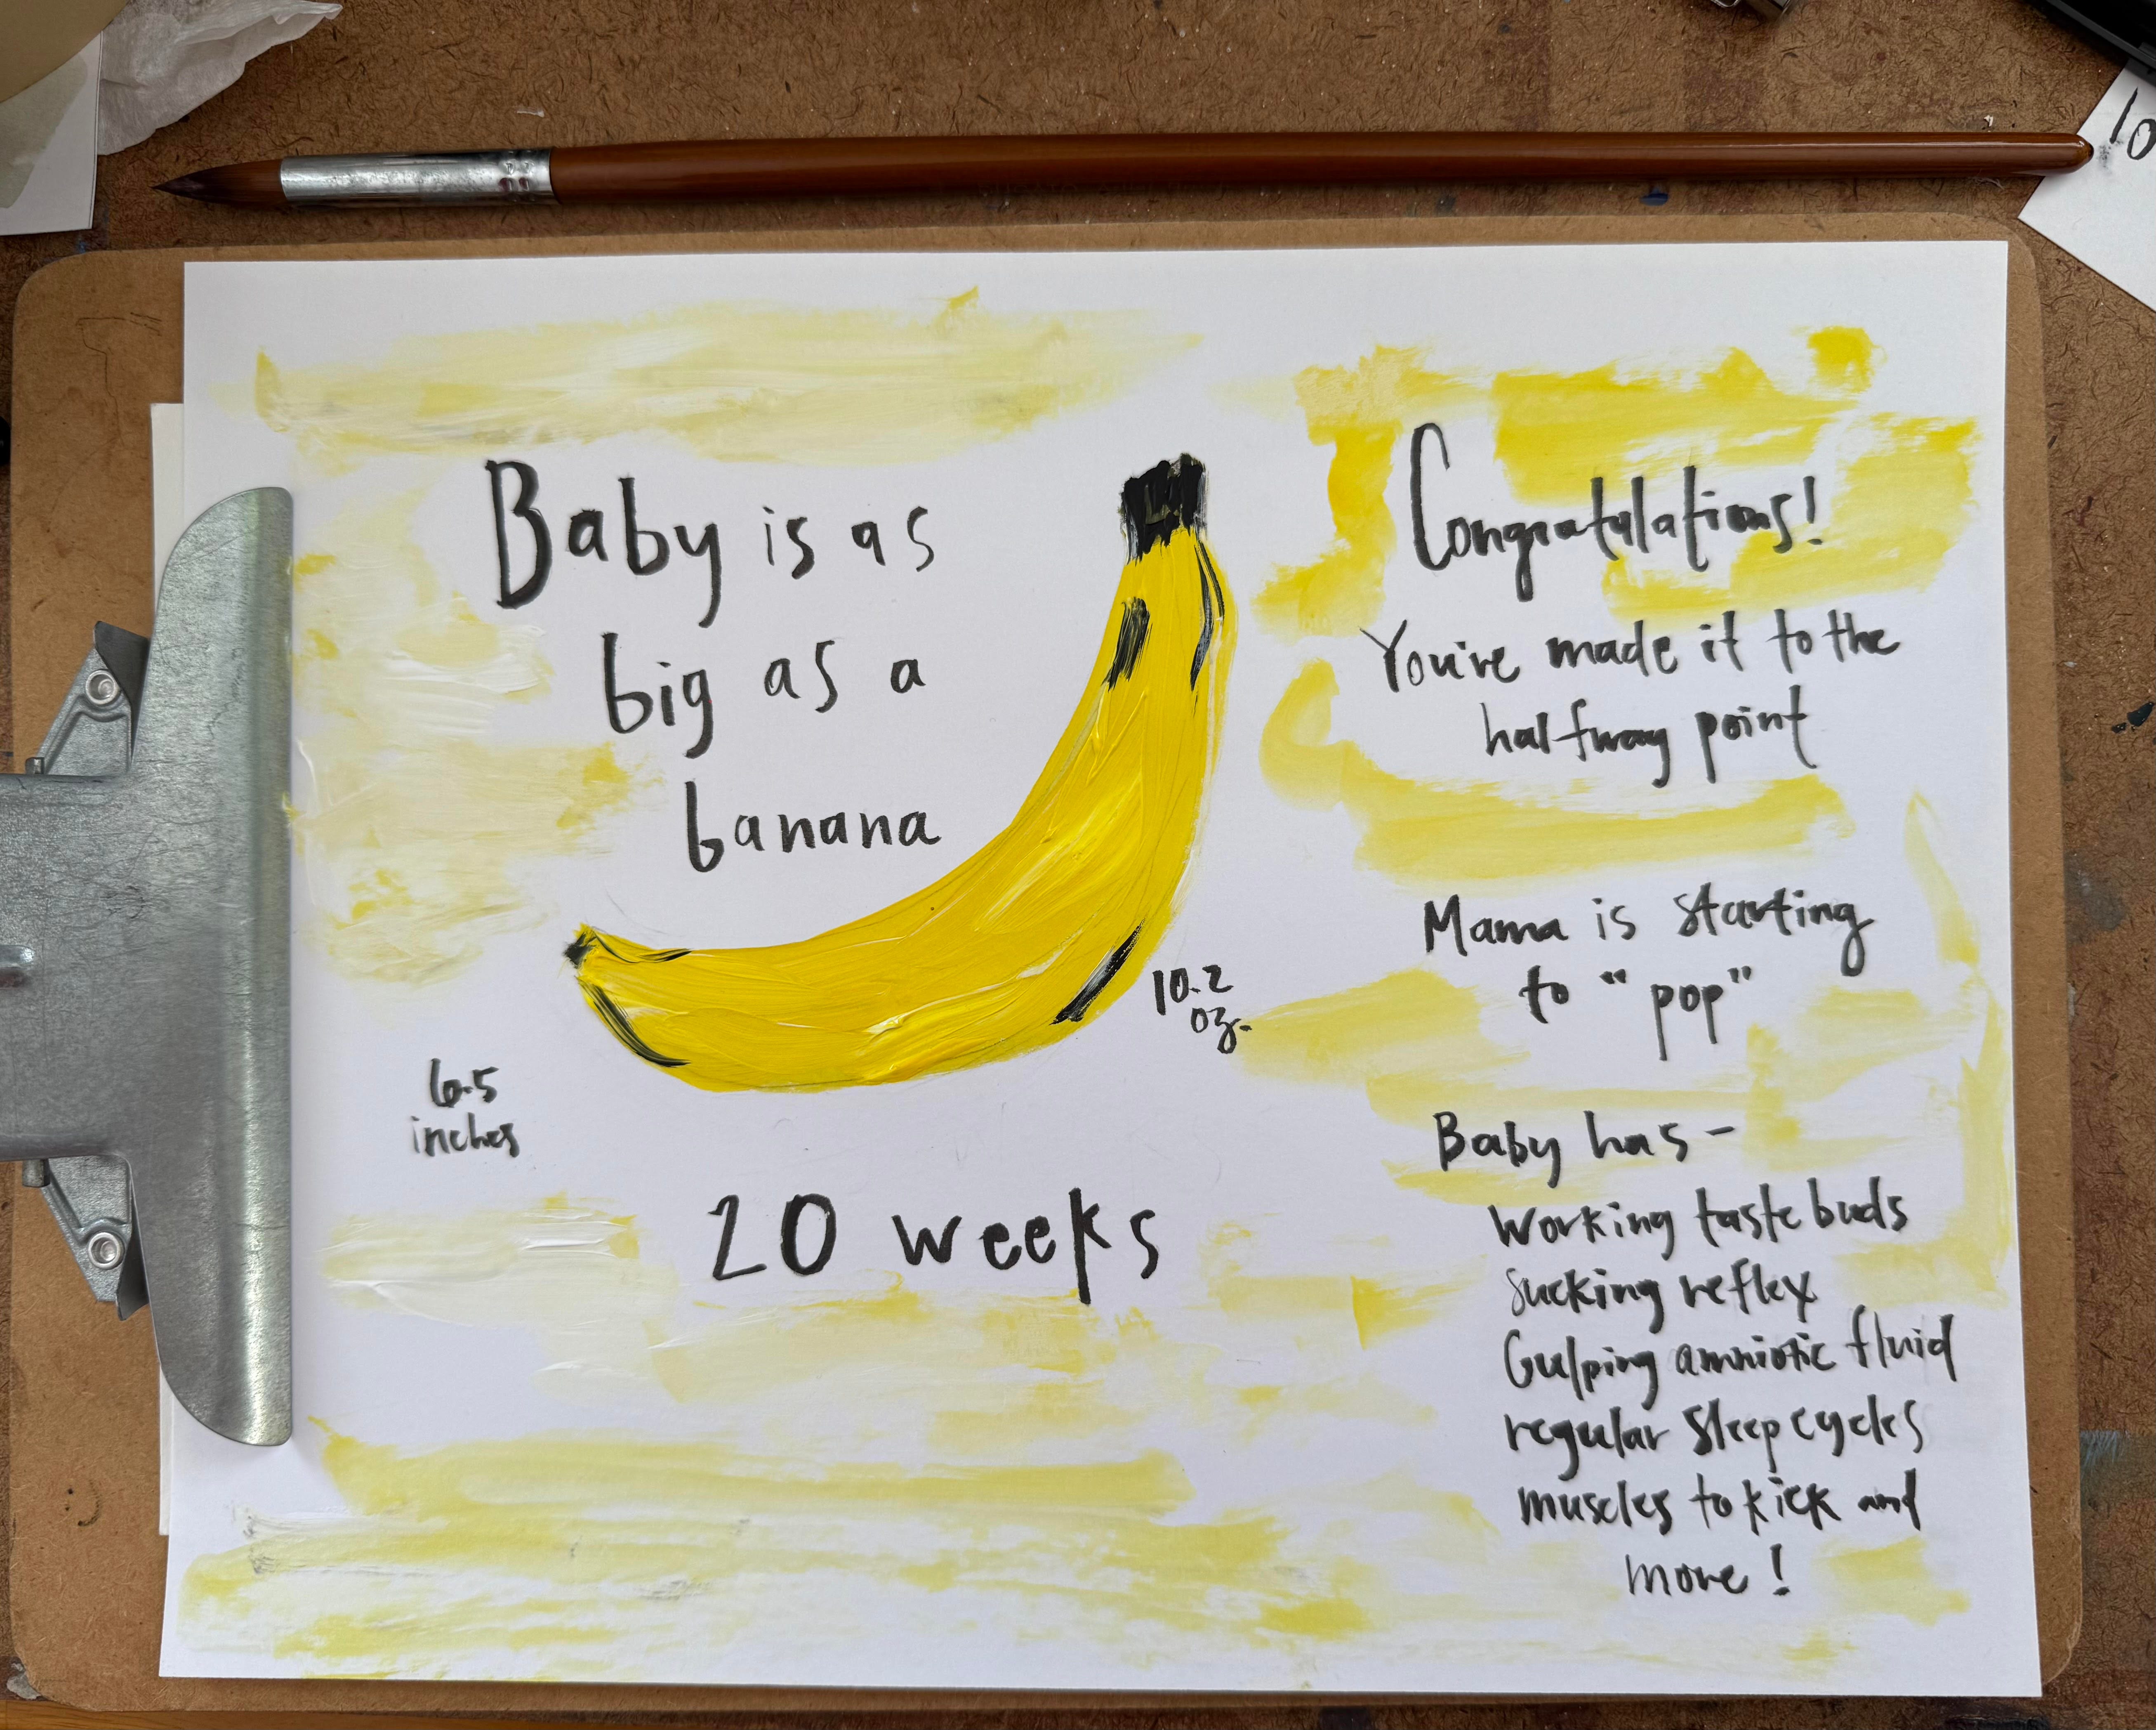 Baby is as
big as a
banana
10.2
oz.
6.5
inches
20 weeks
Congratulations!
You've made it to the
halfway point
Mama is starting
to "pop"
Baby has -
working taste buds
sucking reflex
Gulping amniotic fluid
regular sleep cycles
muscles to kick and
move!
10